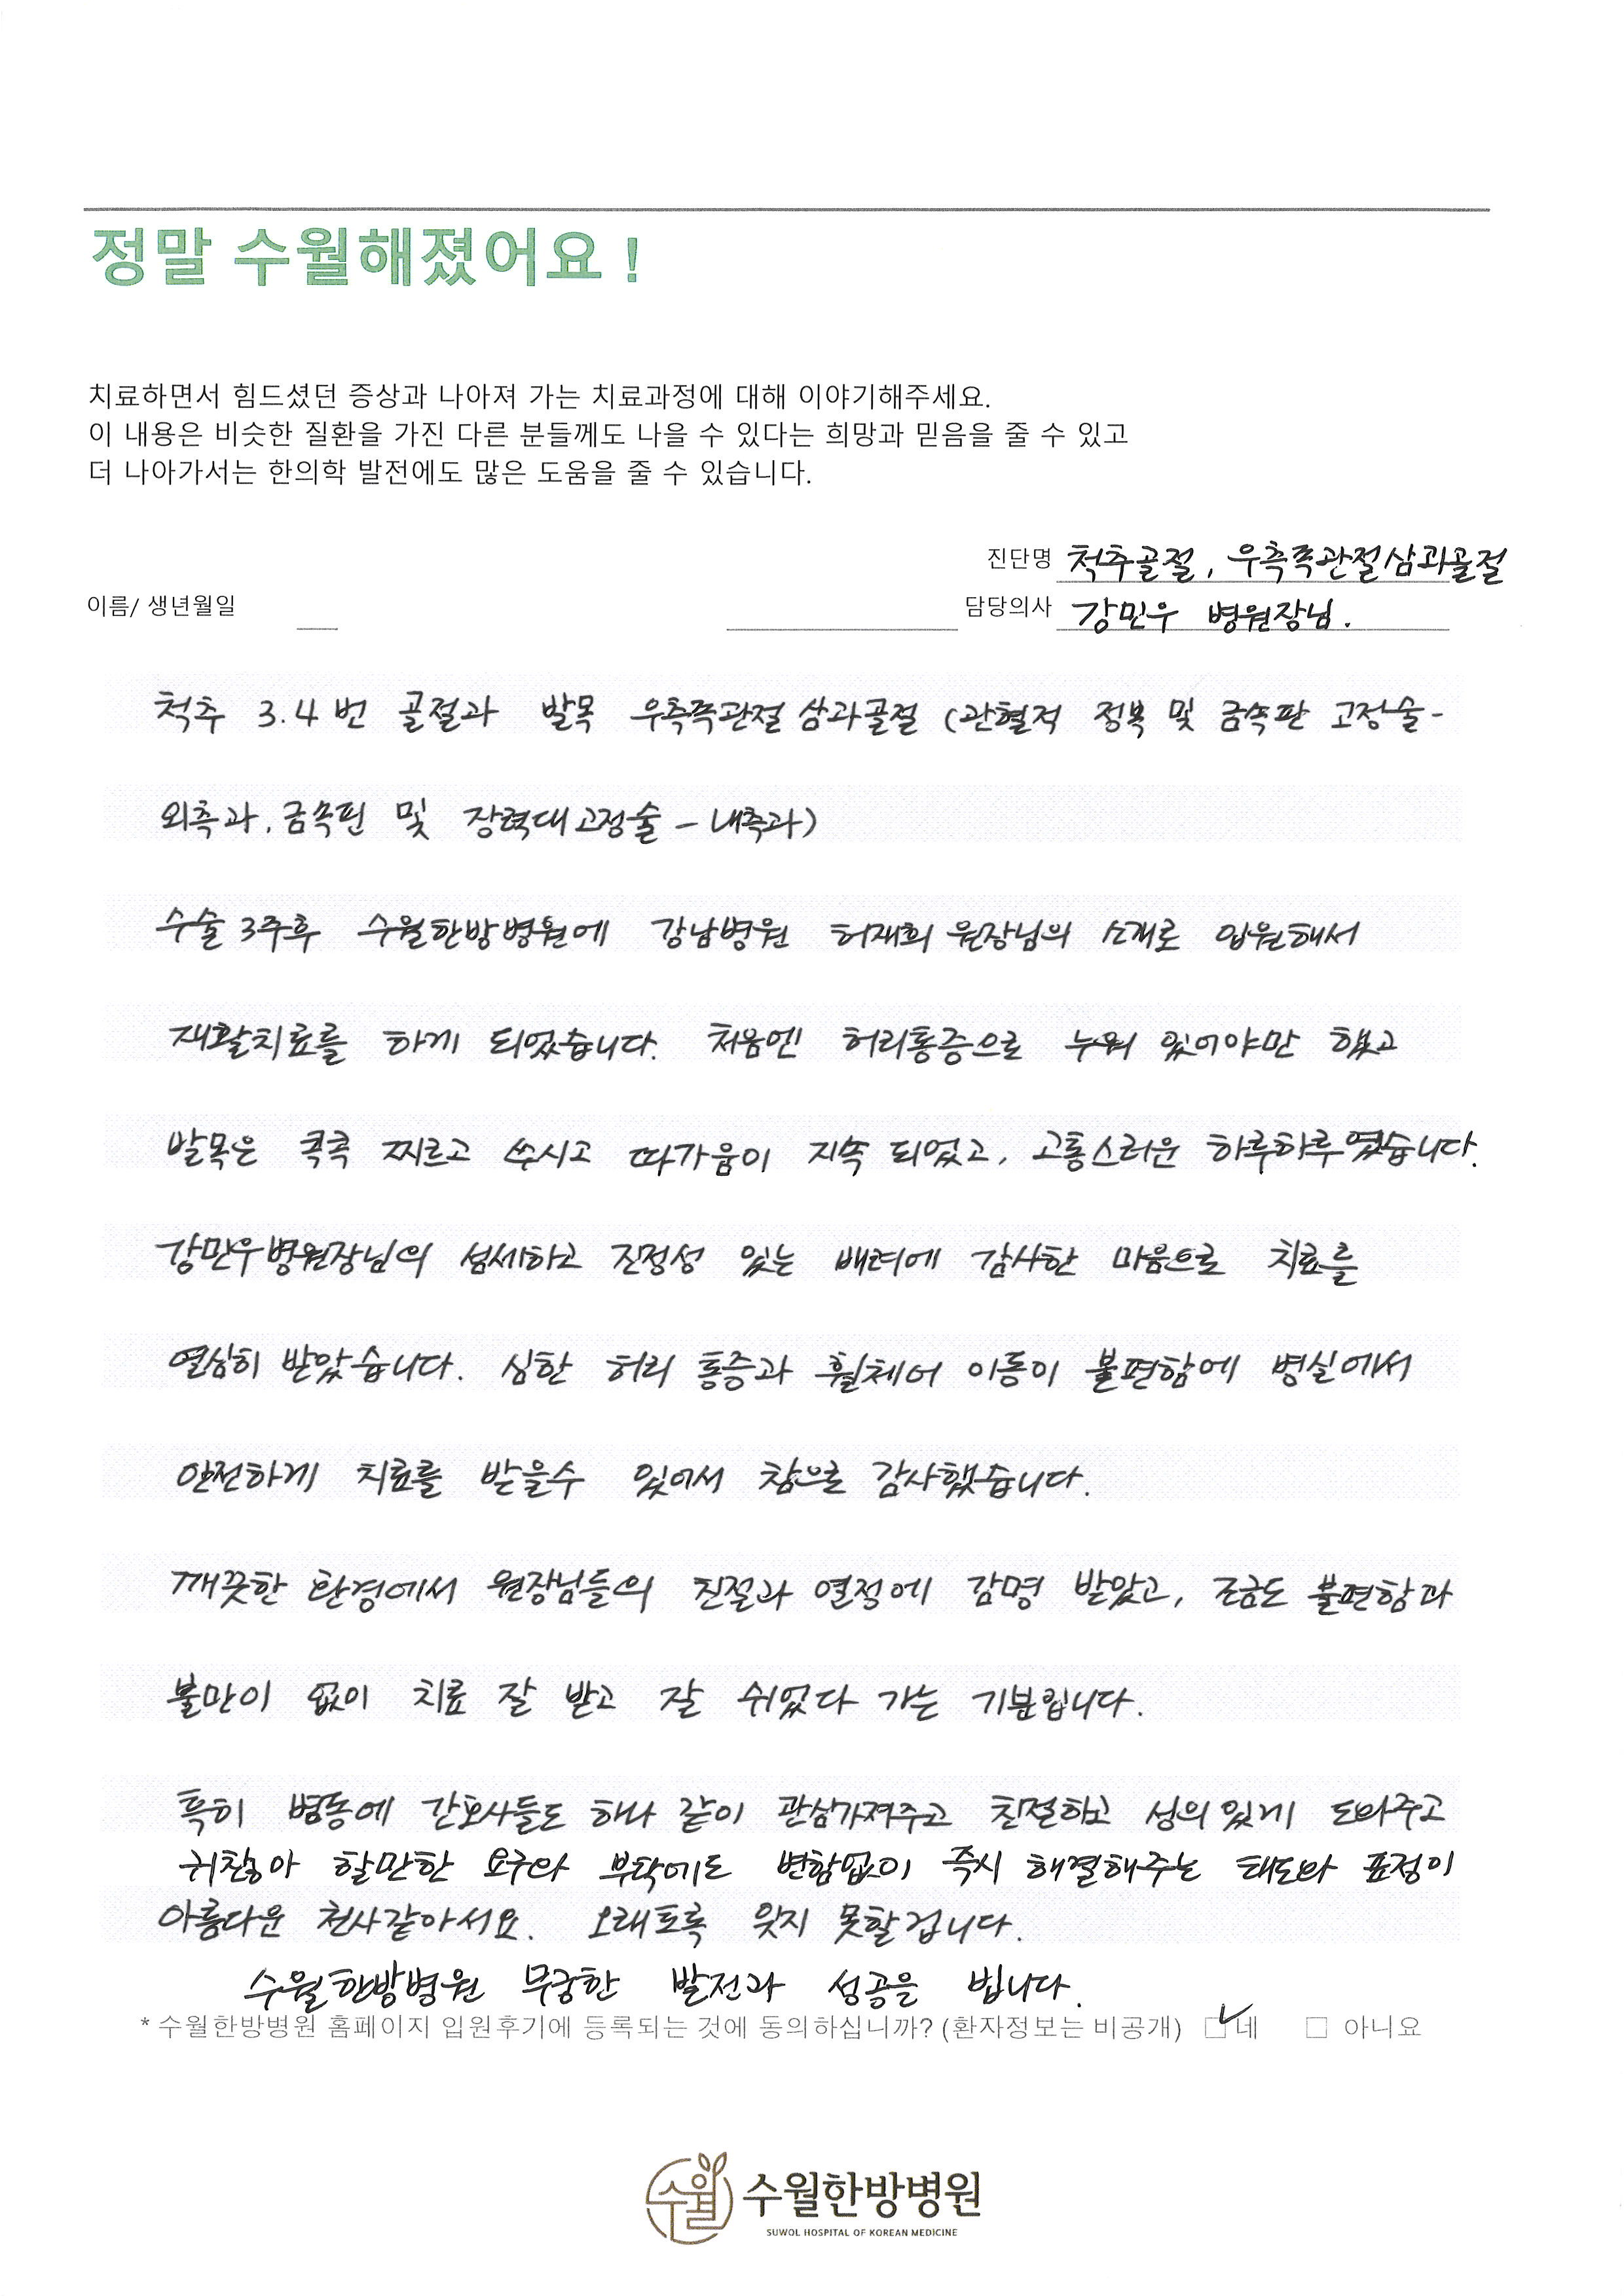 정말 수월해졌어요 !
치료하면서 힘드셨던 증상과 나아져 가는 치료과정에 대해 이야기해주세요.
이 내용은 비슷한 질환을 가진 다른 분들께도 나을 수 있다는 희망과 믿음을 줄 수 있고
더 나아가서는 한의학 발전에도 많은 도움을 줄 수 있습니다.
진단명 척추골절, 우측족관절삼과골절
이름/ 생년월일 담당의사 강민우 병원장님.
척추 3.4번 골절과 발목 우측족관절 삼과골절 (관혈적 정복 및 금속판 고정술-
외측과, 금속핀 및 장력대고정술 - 내측과)
수술 3주후 수월한방병원에 강남병원 허재희 원장님의 소개로 입원해서
재활치료를 하게 되었습니다. 처음엔 허리통증으로 누워 있어야만 했고
발목은 콕콕 찌르고 쑤시고 따가움이 지속 되었고, 고통스러운 하루하루였습니다.
강민우병원장님의 섬세하고 진정성 있는 배려에 감사한 마음으로 치료를
열심히 받았습니다. 심한 허리 통증과 휠체어 이동이 불편함에 병실에서
안전하게 치료를 받을수 있어서 참으로 감사했습니다.
깨끗한 환경에서 원장님들의 친절과 열정에 감명 받았고, 조금도 불편함과
불만이 없이 치료 잘 받고 잘 쉬었다 가는 기분입니다.
특히 병동에 간호사들도 하나 같이 관심가져주고 친절하고 성의있게 도와주고
귀찮아 할만한 요구와 부탁에도 변함없이 즉시 해결해주는 태도와 표정이
아름다운 천사같아서요. 오래토록 잊지 못할겁니다.
수월한방병원 무궁한 발전과 성공을 빕니다.
* 수월한방병원 홈페이지 입원후기에 등록되는 것에 동의하십니까? (환자정보는 비공개) ☑네 □ 아니요
수월 수월한방병원
SUWOL HOSPITAL OF KOREAN MEDICINE